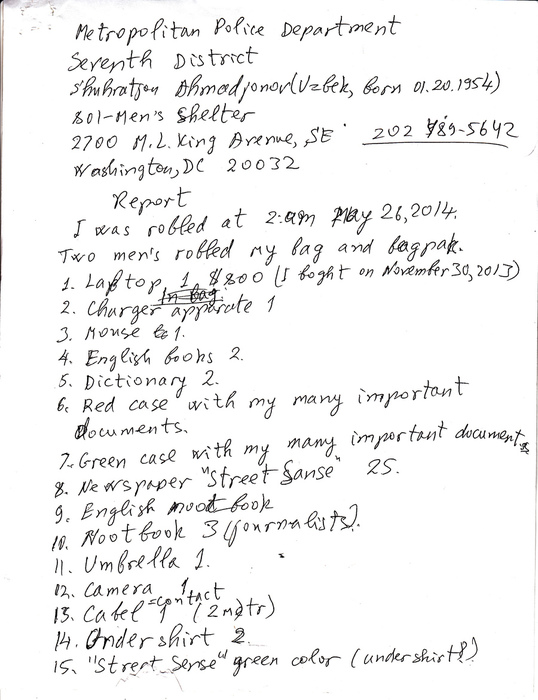 Metropolitan Police Department
Seventh District
Shuhratjon Ahmadjonov (Uzbek, born 01.20.1954)
801-Men's Shelter
2700 M.L. King Avenue, SE 202 789-5642
Washington, DC 20032
Report
I was robled at 2:am May 26, 2014.
Two men's robled my bag and bagpak.
1. Laptop 1, $800 (I boght on November 30, 2013)
In bag
2. Charger apparate 1
3. Mouse 1.
4. English books 2.
5. Dictionary 2.
6. Red case with my many important
documents.
7. Green case with my many important documents
8. Newspaper "Street Sanse" 25.
9. English book
10. Nootbook 3 (journalists).
11. Umbrella 1.
12. Camera 1
13. Cabel =contact 1 (2 metr)
14. Undershirt 2
15. "Street Sense" green color (undershirt)